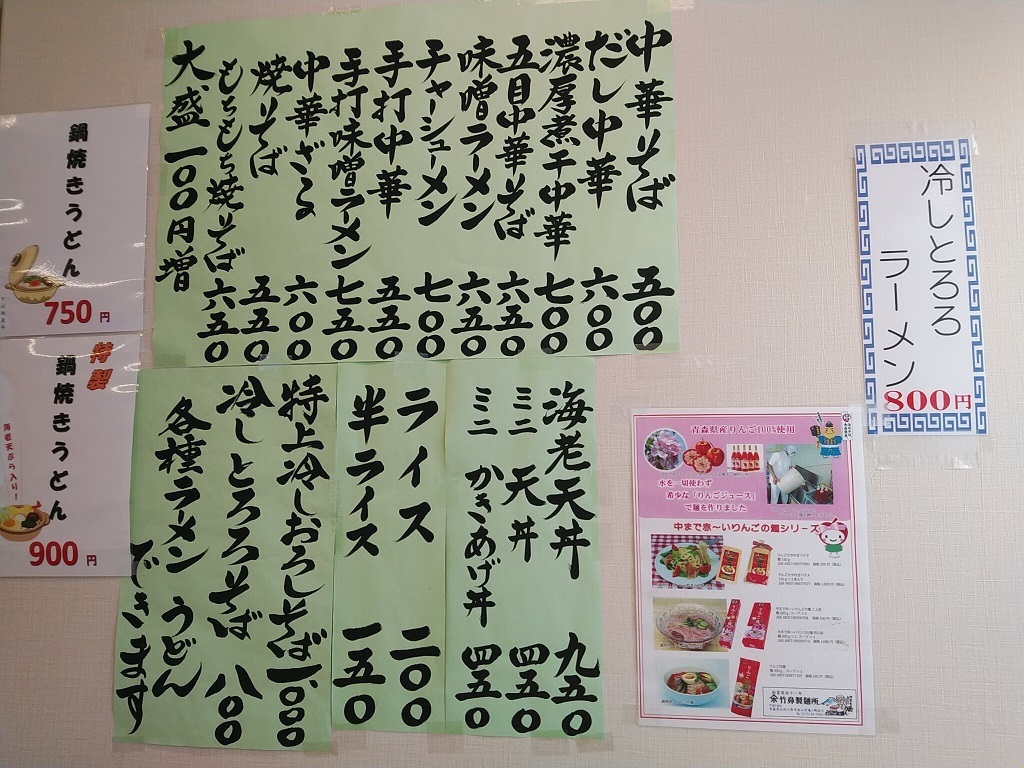 中華そば 五〇〇
だし中華 六〇〇
濃厚煮干中華 七〇〇
五目中華そば 六五〇
味噌ラーメン 六五〇
チャーシューメン 七〇〇
手打中華 五五〇
手打味噌ラーメン 七五〇
中華ざる 六〇〇
焼そば 五五〇
もちもち焼そば 六五〇
大盛一〇〇円増
海老天丼 九五〇
ミニ天丼 四五〇
ミニかきあげ丼 四五〇
ライス 二〇〇
半ライス 一五〇
特上冷しおろしそば 一、〇〇〇
冷しとろろそば 八〇〇
各種ラーメン うどん
できます
鍋焼きうどん
750円
特製
鍋焼きうどん
海老天ぷら入り!
900円
冷しとろろ
ラーメン
800円
青森県産りんご100%使用
水を一切使わず
希少な「りんごジュース」
で麺を作りました
中まで赤〜いりんごの麺シリーズ
竹鼻製麺所